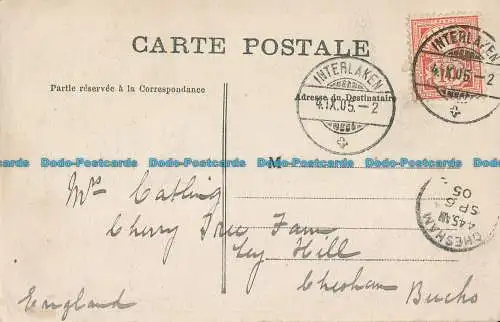 CARTE POSTALE
Partie réservée à la Correspondance
Adresse du Destinataire
INTERLAKEN
4.IX.05.-2
INTERLAKEN
4.IX.05.-2
Dodo-Postcards Dodo-Postcards Dodo-Postcards Dodo-Postcards Dodo-Postcards
M
Mrs Catling
Cherry Tree Farm
Ley Hill
Chesham
Bucks
England
CHESHAM
4.45AM
SP 6
05